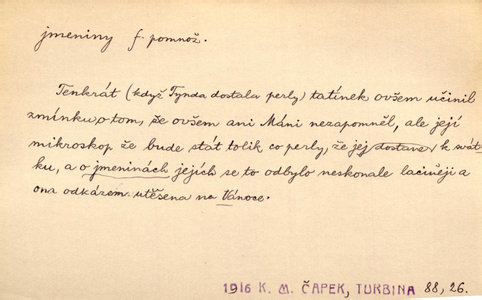 jmeniny f. pomnož.
Tenkrát (když Tynda dostala perly) tatínek ovšem učinil
zmínku o tom, že ovšem ani Máni nezapomněl, ale její
mikroskop že bude stát tolik co perly, že jej dostane k svát-
ku, a o jmeninách jejích se to odbylo neskonale laciněji a
ona odkázem utěšena na Vánoce.
1916 K. M. ČAPEK, TURBINA 88, 26.